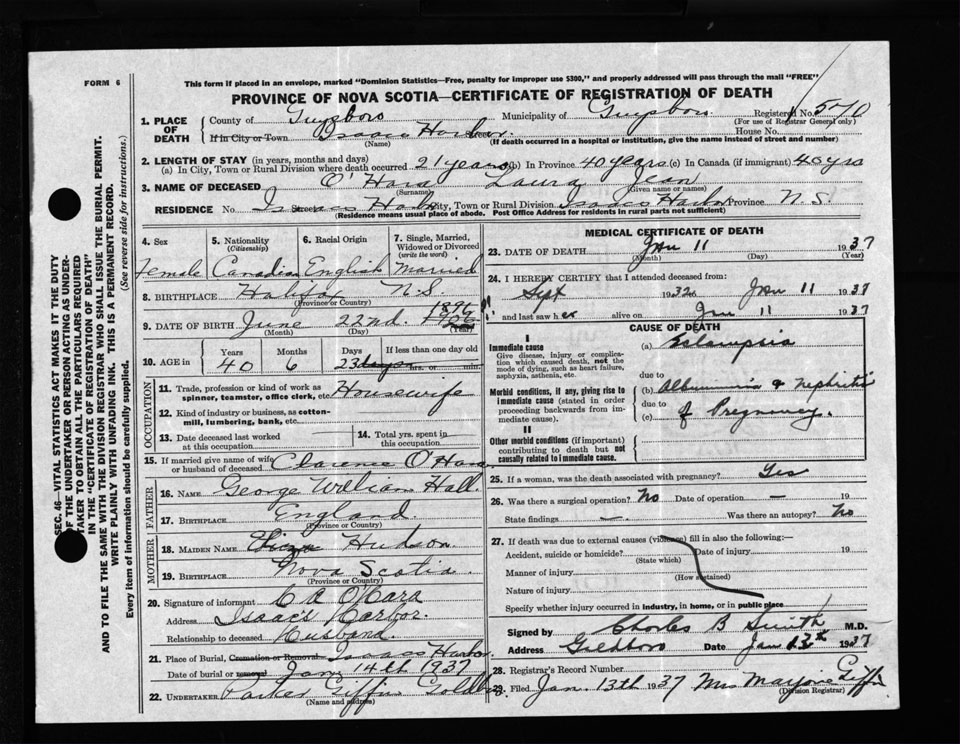 FORM 6
This form if placed in an envelope, marked "Dominion Statistics—Free, penalty for improper use $300," and properly addressed will pass through the mail "FREE"
PROVINCE OF NOVA SCOTIA—CERTIFICATE OF REGISTRATION OF DEATH
1. PLACE OF DEATH
County of Guysboro Municipality of Guysboro Registered No. 570
(For use of Registrar General only)
If in City or Town Isaacs Harbor Street House No.
(Name) (If death occurred in a hospital or institution, give the name instead of street and number)
2. LENGTH OF STAY (in years, months and days)
(a) In City, Town or Rural Division where death occurred 21 years (b) In Province 40 years (c) In Canada (if immigrant) 40 yrs
3. NAME OF DECEASED O'Hara Laura Jean
(Surname) (Given name or names)
RESIDENCE No Street Isaacs Harb City, Town or Rural Division Isaacs Harbor Province N.S.
(Residence means usual place of abode. Post Office Address for residents in rural parts not sufficient)
4. Sex
Female
5. Nationality (Citizenship)
Canadian
6. Racial Origin
English
7. Single, Married, Widowed or Divorced (write the word)
Married
8. BIRTHPLACE Halifax N.S.
(Province or Country)
9. DATE OF BIRTH June 22nd. 1896
(Month) (Day) (Year)
10. AGE in
Years Months Days If less than one day old
40 6 23 days hrs. or min.
OCCUPATION
11. Trade, profession or kind of work as spinner, teamster, office clerk, etc. Housewife
12. Kind of industry or business, as cotton-mill, lumbering, bank, etc.
13. Date deceased last worked at this occupation
14. Total yrs. spent in this occupation
15. If married give name of wife or husband of deceased Clarence O'Hara
FATHER
16. NAME George William Hall
17. BIRTHPLACE England
(Province or Country)
MOTHER
18. MAIDEN NAME Hudson
19. BIRTHPLACE Nova Scotia
(Province or Country)
20. Signature of informant C A O'Hara
Address Isaac's Harbor.
Relationship to deceased Husband.
21. Place of Burial, Cremation or Removal Isaacs Harbor
Date of burial or removal Jan 14th 1937
22. UNDERTAKER Parker Giffin Goldboro
(Name and address)
MEDICAL CERTIFICATE OF DEATH
23. DATE OF DEATH Jan 11 1937
(Month) (Day) (Year)
24. I HEREBY CERTIFY that I attended deceased from:
Sept 1936 Jan 11 1937
and last saw her alive on Jan 11 1937
CAUSE OF DEATH
I
Immediate cause
Give disease, injury or complication which caused death, not the mode of dying, such as heart failure, asphyxia, asthenia, etc.
(a) Eclampsia
due to
Morbid conditions, if any, giving rise to immediate cause (stated in order proceeding backwards from immediate cause).
(b) Albuminuria & nephritis
due to
(c) of Pregnancy.
II
Other morbid conditions (if important) contributing to death but not causally related to immediate cause.
25. If a woman, was the death associated with pregnancy? Yes
26. Was there a surgical operation? No Date of operation — 19
State findings — Was there an autopsy? No
27. If death was due to external causes (violence) fill in also the following:—
Accident, suicide or homicide? Date of injury 19
(State which)
Manner of injury
(How sustained)
Nature of injury
Specify whether injury occurred in industry, in home, or in public place
Signed by Charles B Smith M.D.
Address Goldboro Date Jan 13th 1937
28. Registrar's Record Number
29. Filed Jan. 13th 1937 Mrs Marjorie Giffin
(Division Registrar)
SEC. 46—VITAL STATISTICS ACT MAKES IT THE DUTY OF THE UNDERTAKER OR PERSON ACTING AS UNDERTAKER TO OBTAIN ALL THE PARTICULARS REQUIRED IN THE "CERTIFICATE OF REGISTRATION OF DEATH" AND TO FILE THE SAME WITH THE DIVISION REGISTRAR WHO SHALL ISSUE THE BURIAL PERMIT.
WRITE PLAINLY WITH UNFADING INK. THIS IS A PERMANENT RECORD.
Every item of information should be carefully supplied. (See reverse side for instructions.)